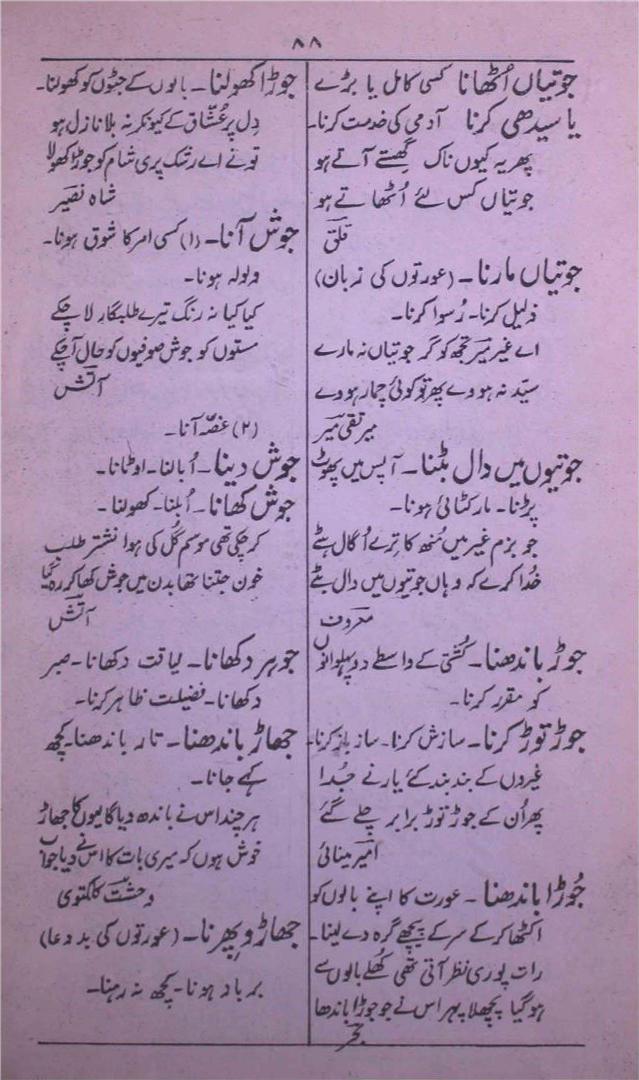 ۸۸
جوتیاں اُٹھانا کسی کامل یا بڑے
یا سیدھی کرنا آدمی کی خدمت کرنا۔
پھر یہ کیوں ناک گھِستے آتے ہو
جوتیاں کس لئے اُٹھاتے ہو
قلق
جوتیاں مارنا۔ (عورتوں کی زبان)
ذلیل کرنا۔ رُسوا کرنا۔
اے غیر میر تجھ کو گر جوتیاں نہ مارے
سیّد نہ ہووے پھر تو کوئی چمار ہووے
میر تقی میر
جوتیوں میں دال بٹنا۔ آپس میں پھوٹ
پڑنا۔ مار کٹائی ہونا۔
جو بزم غیر میں مُنھ کا ترے اُگال بٹے
خُدا کرے کہ وہاں جوتیوں میں دال بٹے
معروف
جوڑ باندھنا۔ کُشتی کے واسطے دو پہلوانوں
کو مقرر کرنا۔
جوڑ توڑ کرنا۔ سازش کرنا۔ ساز باز کرنا۔
غیروں کے بند بند کئے یار نے جُدا
پھر اُن کے جوڑ توڑ برابر چلے گئے
امیر مینائی
جُوڑا باندھنا۔ عورت کا اپنے بالوں کو
اکٹھا کر کے سر کے پیچھے گرہ دے لینا۔
رات پوری نظر آتی تھی کھُلے بالوں سے
ہو گیا پچھلا پہر اس نے جو جوڑا باندھا
بحر
جوڑا کھولنا۔ بالوں کے جٹوں کو کھولنا۔
دِل پر عُشّاق کے کیونکر نہ بلا نازل ہو
تو نے اے رشک پری شام کو جوڑا کھولا
شاہ نصیر
جوش آنا۔ (۱) کسی امر کا شوق ہونا۔
ولولہ ہونا۔
کیا کیا نہ رنگ تیرے طلبگار لا چکے
مستوں کو جوش صوفیوں کو حال آ چکے
آتش
(۲) غصّہ آنا۔
جوش دینا۔ اُبالنا۔ اوٹانا۔
جوش کھانا۔ اُبلنا۔ کھولنا۔
کر چکی تھی موسمِ گُل کی ہوا نشتر طلب
خون جتنا تھا بدن میں جوش کھا کر رہ گیا
آتش
جوہر دکھانا۔ لیاقت دکھانا۔ صبر
دکھانا۔ فضیلت ظاہر کرنا۔
جھاڑ باندھنا۔ تار باندھنا۔ کچھ
کہے جانا۔
ہر چند اس نے باندھ دیا گالیوں کا جھاڑ
خوش ہوں کہ میری بات کا اس نے دیا جواب
وحشت کلکتوی
جھاڑو پھرنا۔ (عورتوں کی بد دعا)
برباد ہونا۔ کچھ نہ رہنا۔